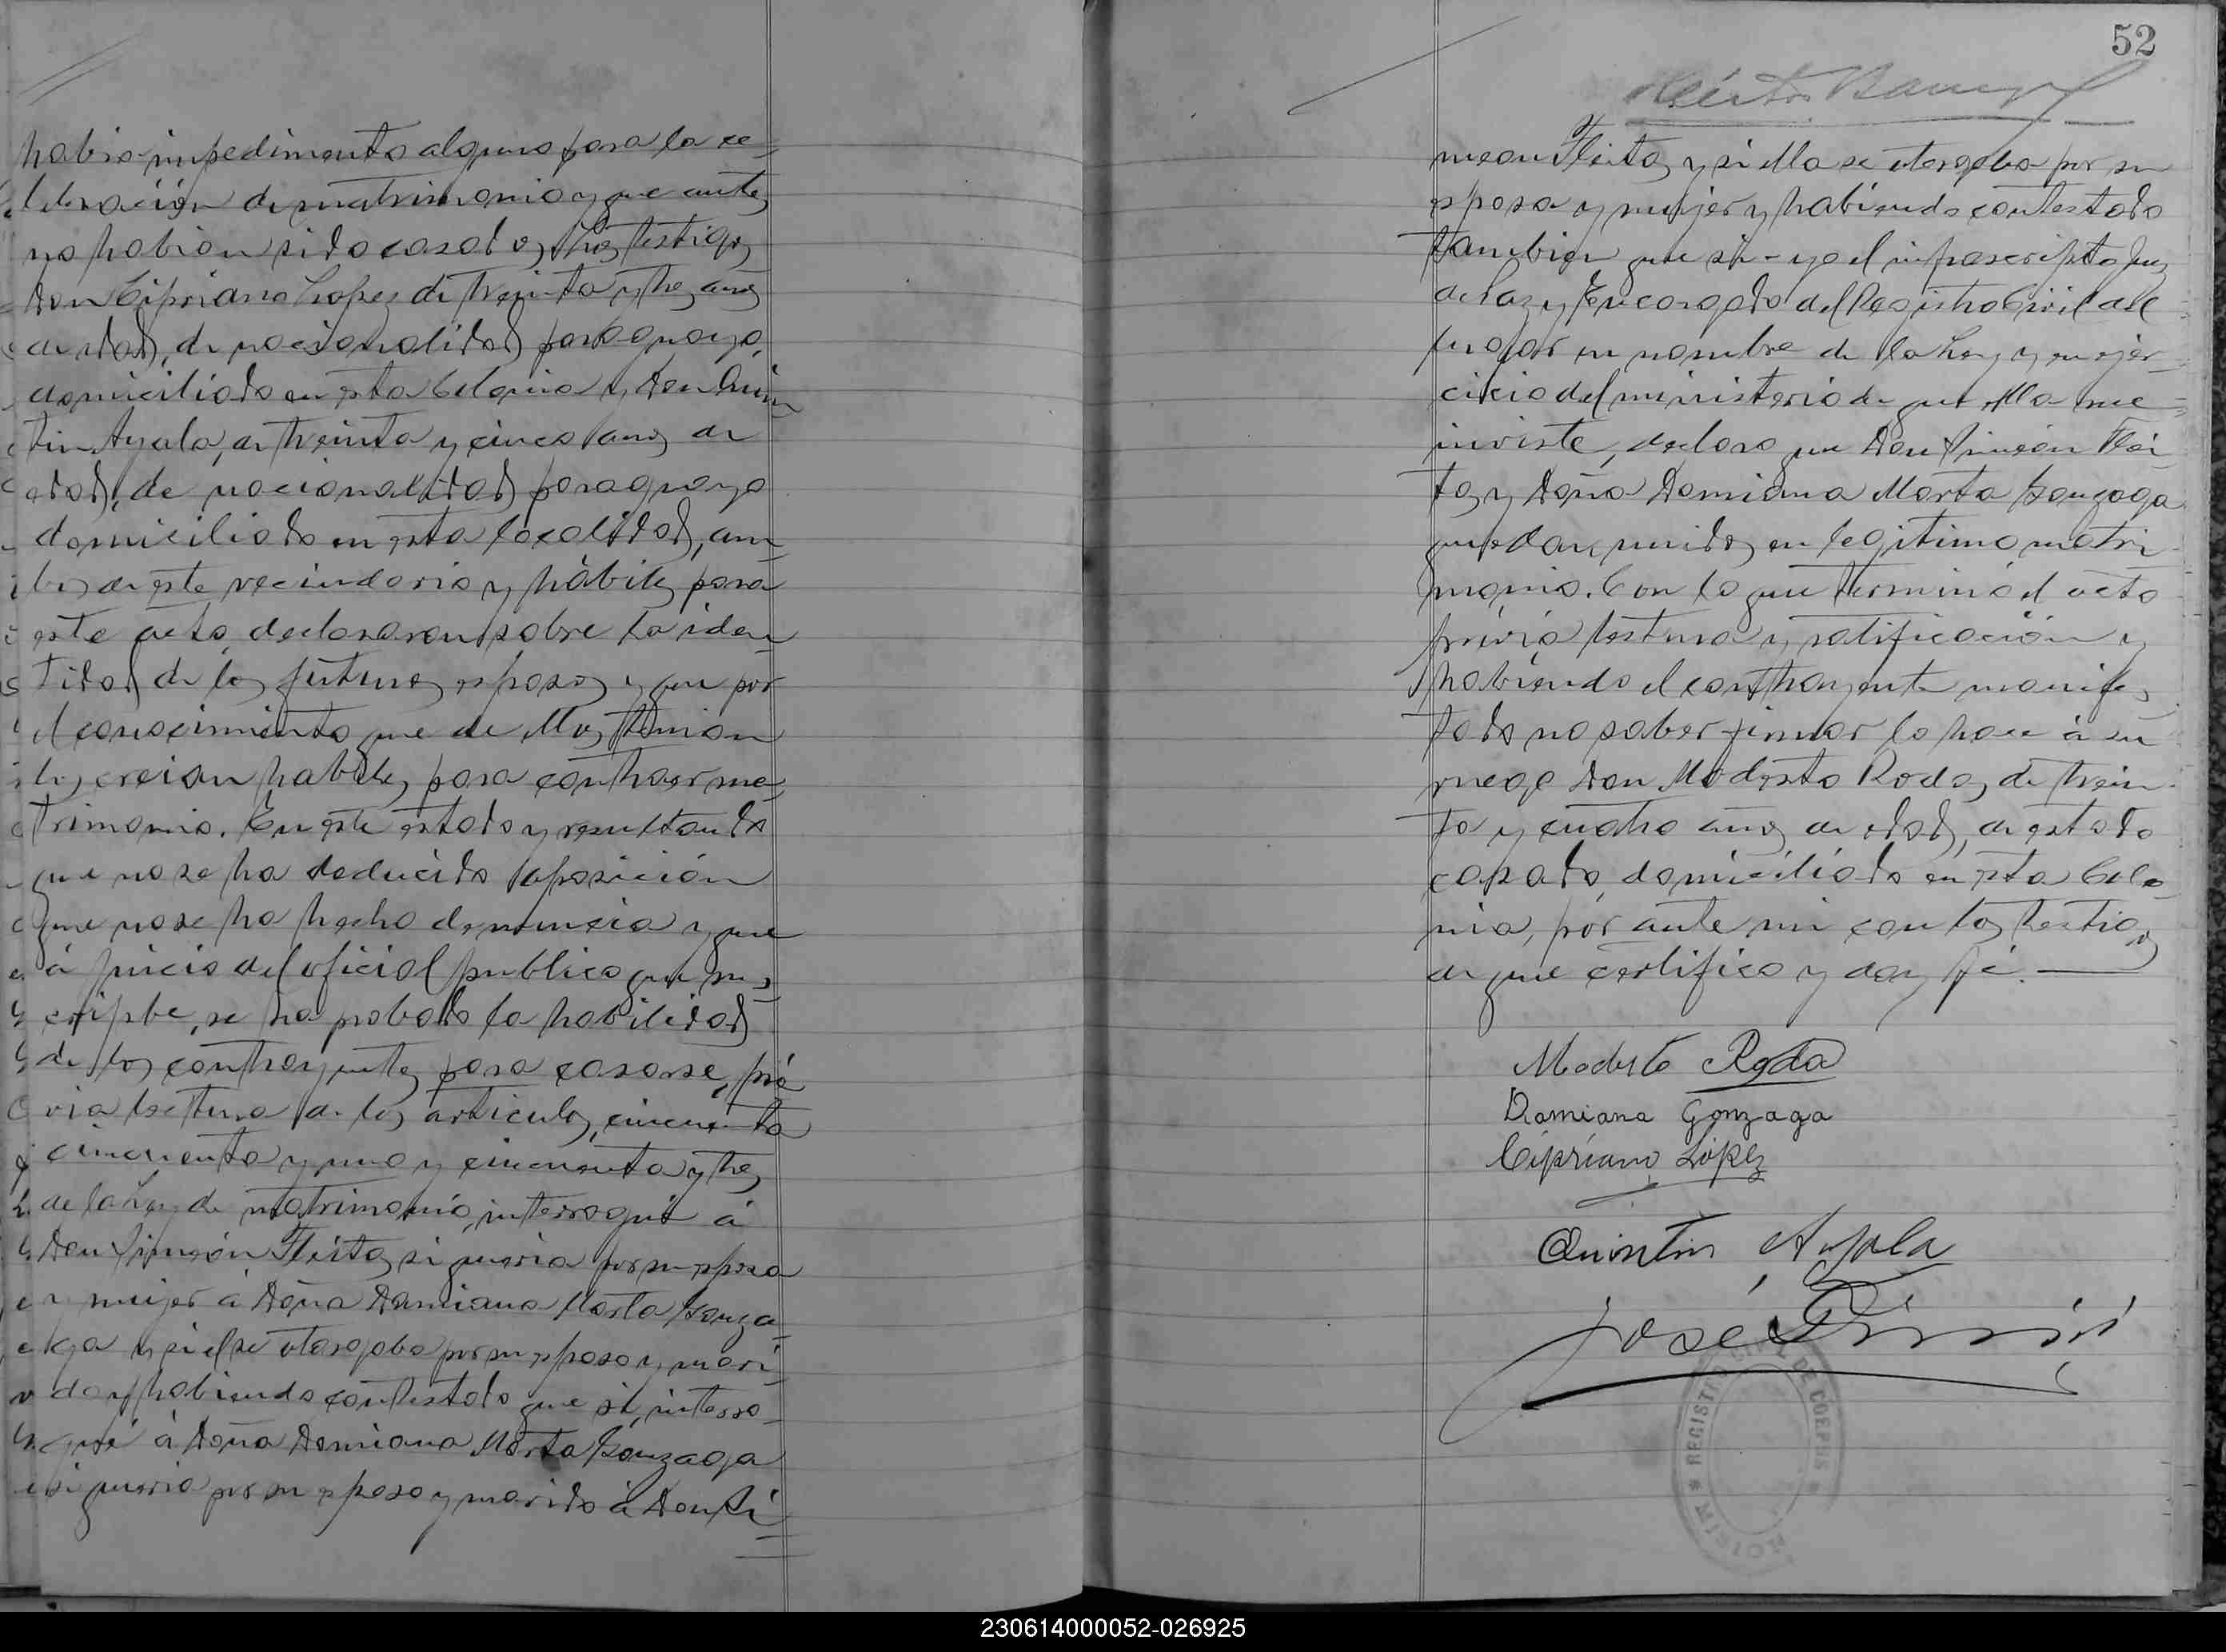 habia impedimento alguno para la ce-
lebración de matrimonio y que antes
no habian sido casados, los testigos
Don Cipriano Lopez de treinta y tres años
de edad, de nacionalidad paraguaya,
domiciliado en esta Colonia y Don Quin-
tin Ayala, de treinta y cinco años de
edad, de nacionalidad paraguaya
domiciliado en esta localidad, am-
bos de este vecindario y hábiles para
este acto, declararon sobre la iden-
tidad de los futuros esposos y que por
el conocimiento que de ellos tenian
los creian habiles para contraer ma-
trimonio. En este estado y resultando
que no se ha deducido oposición
que no se ha hecho denuncia y que
á juicio del oficial publico que sus-
cripbe, se ha probado la habilidad
de los contrayentes para casarse, pré-
via lectura de los articulos, cincuenta
cincuenta y uno y cincuenta y tres
de la Ley de matrimonio, interrogué á
Don Simeón Fleitas si queria por su esposa
y mujer á Doña Damiana Marta Gonza-
ga y si el se otorgaba por su esposo y mari-
do y habiendo contestado que sí, interro-
gué á Doña Damiana Marta Gonzaga
si queria por su esposo y marido á Don Si-
52
Héctor
meon Fleitas y si ella se otorgaba por su
esposa y mujer y habiendo contestado
tambien que si - yo el infrascripto Juez
de Paz y Encargado del Registro Civil del
lugar en nombre de la Ley y en ejer-
cicio del ministerio de que ella me
inviste, declaro que Don Simeón Flei-
tas y Doña Damiana Marta Gonzaga
quedan unidos en legitimo matri-
monio. Con lo que terminó el acto
prévia lectura y ratificación y
habiendo el contrayente manifes-
tado no saber firmar lo hace á su
ruego Don Modesto Rodas, de trein-
ta y cuatro años de edad, de estado
casado, domiciliado en esta Colo-
nia, por ante mi con los testigos
de que certifico y doy fé.
Modesto Roda
Damiana Gonzaga
Cipriano López
Quintin Ayala
José
REGISTRO CIVIL DE COEPUS
230614000052-026925